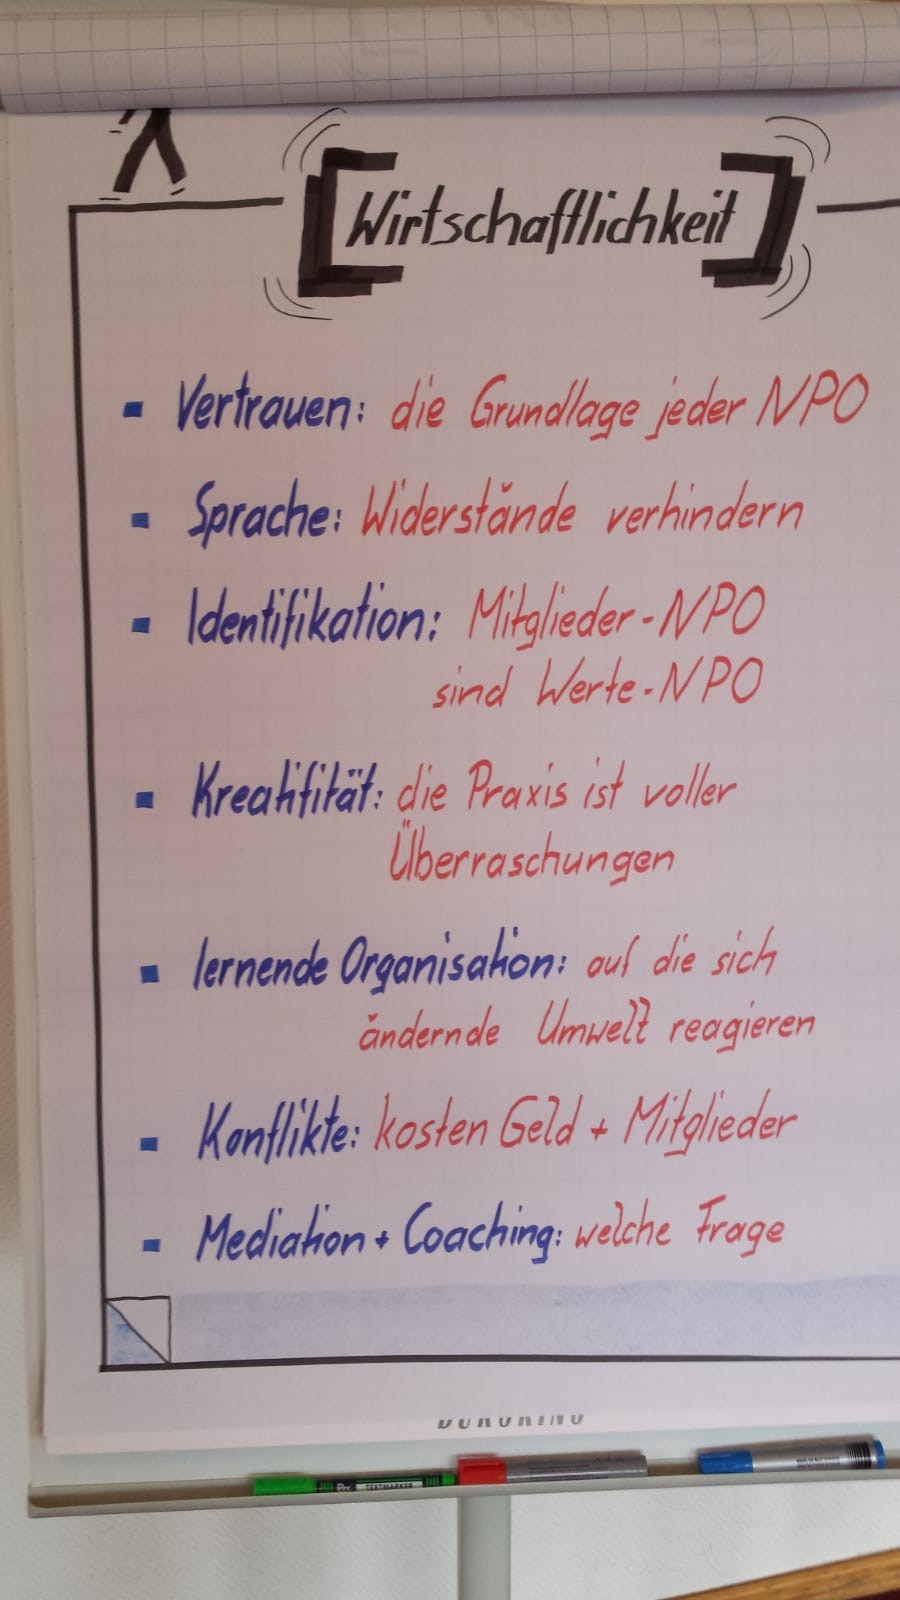 Wirtschaftlichkeit
Vertrauen: die Grundlage jeder NPO
Sprache: Widerstände verhindern
Identifikation: Mitglieder-NPO
sind Werte-NPO
Kreatifität: die Praxis ist voller
Überraschungen
lernende Organisation: auf die sich
ändernde Umwelt reagieren
Konflikte: kosten Geld + Mitglieder
Mediation + Coaching: welche Frage
TEXTMARKER